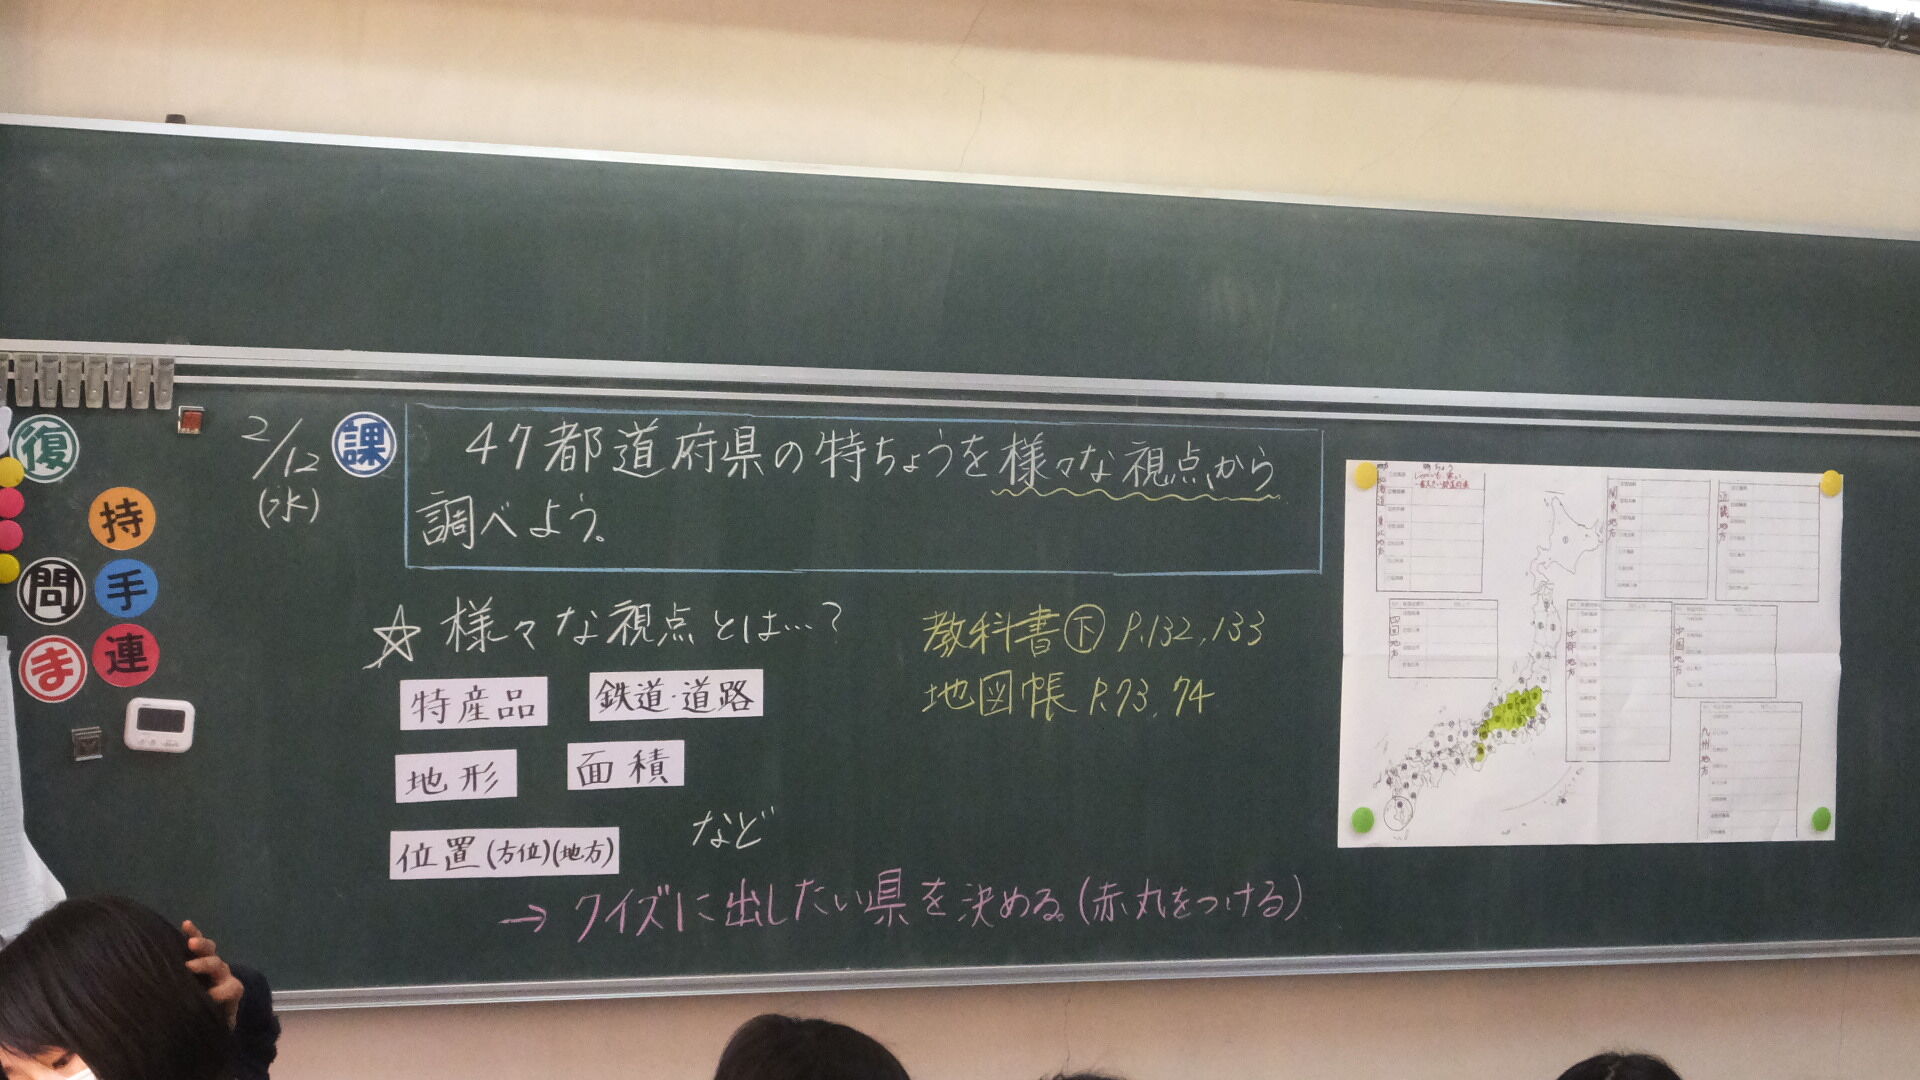 復
持
問
手
ま
連
2/12
(水)
課
47都道府県の特ちょうを様々な視点から
調べよう。
☆様々な視点とは…?
特産品
鉄道・道路
地形
面積
位置(方位)(地方)
など
→クイズに出したい県を決める。(赤丸をつける)
教科書㊦P.132,133
地図帳P.73,74
東北地方
関東地方
近畿地方
四国地方
中部地方
中国地方
九州地方